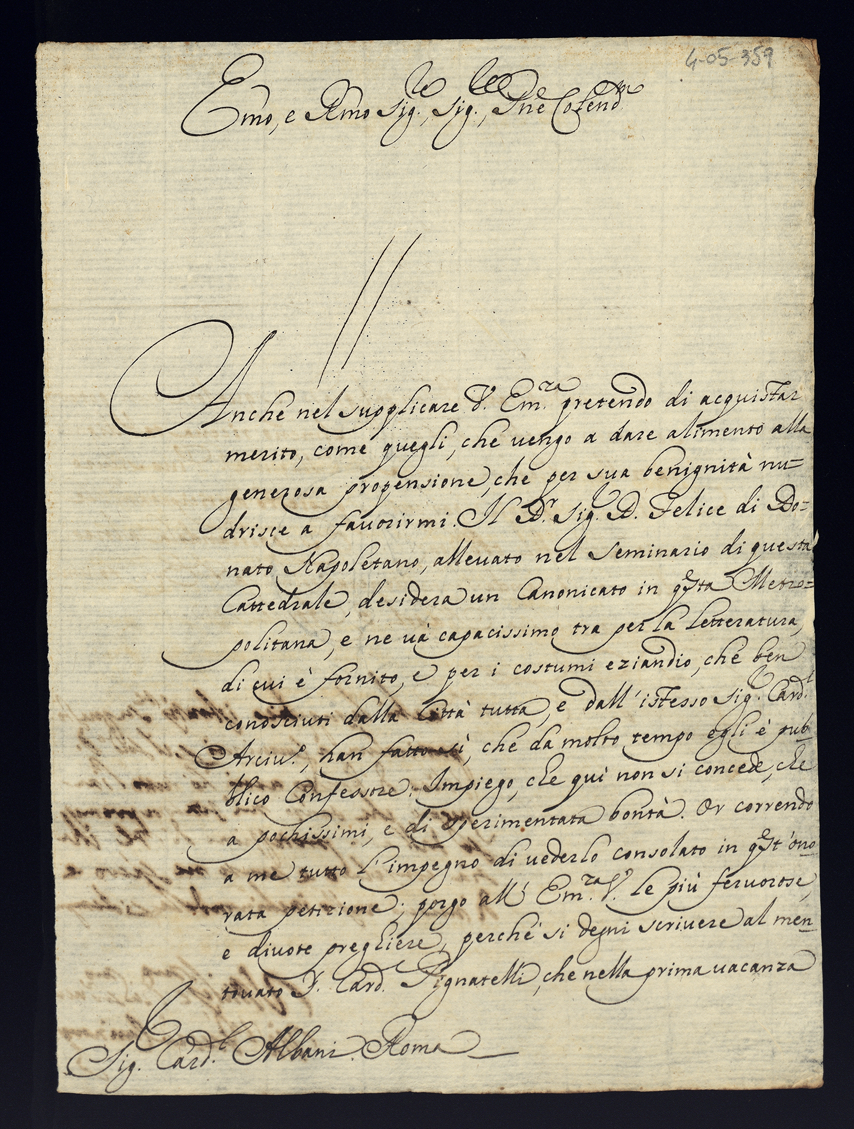 4-05-359
Emo, e Rmo Sig.re, Sig.re, Pne Colendmo
Anche nel supplicare V. Em.za pretendo di acquistar
merito, come quegli, che vengo a dare alimento alla
generosa propensione, che per sua benignità nu=
drisce a favorirmi. Il Dr. Sig.r D. Felice di Do=
nato Napoletano, allevato nel Seminario di questa
Cattedrale, desidera un Canonicato in qsta Metro=
politana, e ne và capacissimo tra per la letteratura,
di cui è fornito, e per i costumi eziandio, che ben
conosciuti dalla Città tutta, e dall'istesso Sig.r Card.l
Arciv.o, han fatto sì, che da molto tempo egli è pub-
blico Confessore; Impiego, che quì non si concede, che
a pochissimi, e di sperimentata bontà. Or correndo
a me tutto l'impegno di vederlo consolato in qst'ono-
rata petizione; porgo all' Em.za V. le più fervorose,
e divote preghiere, perchè si degni scrivere al men-
tovato S. Card. Pignatelli, che nella prima vacanza
Sig. Card.l Albani. Roma